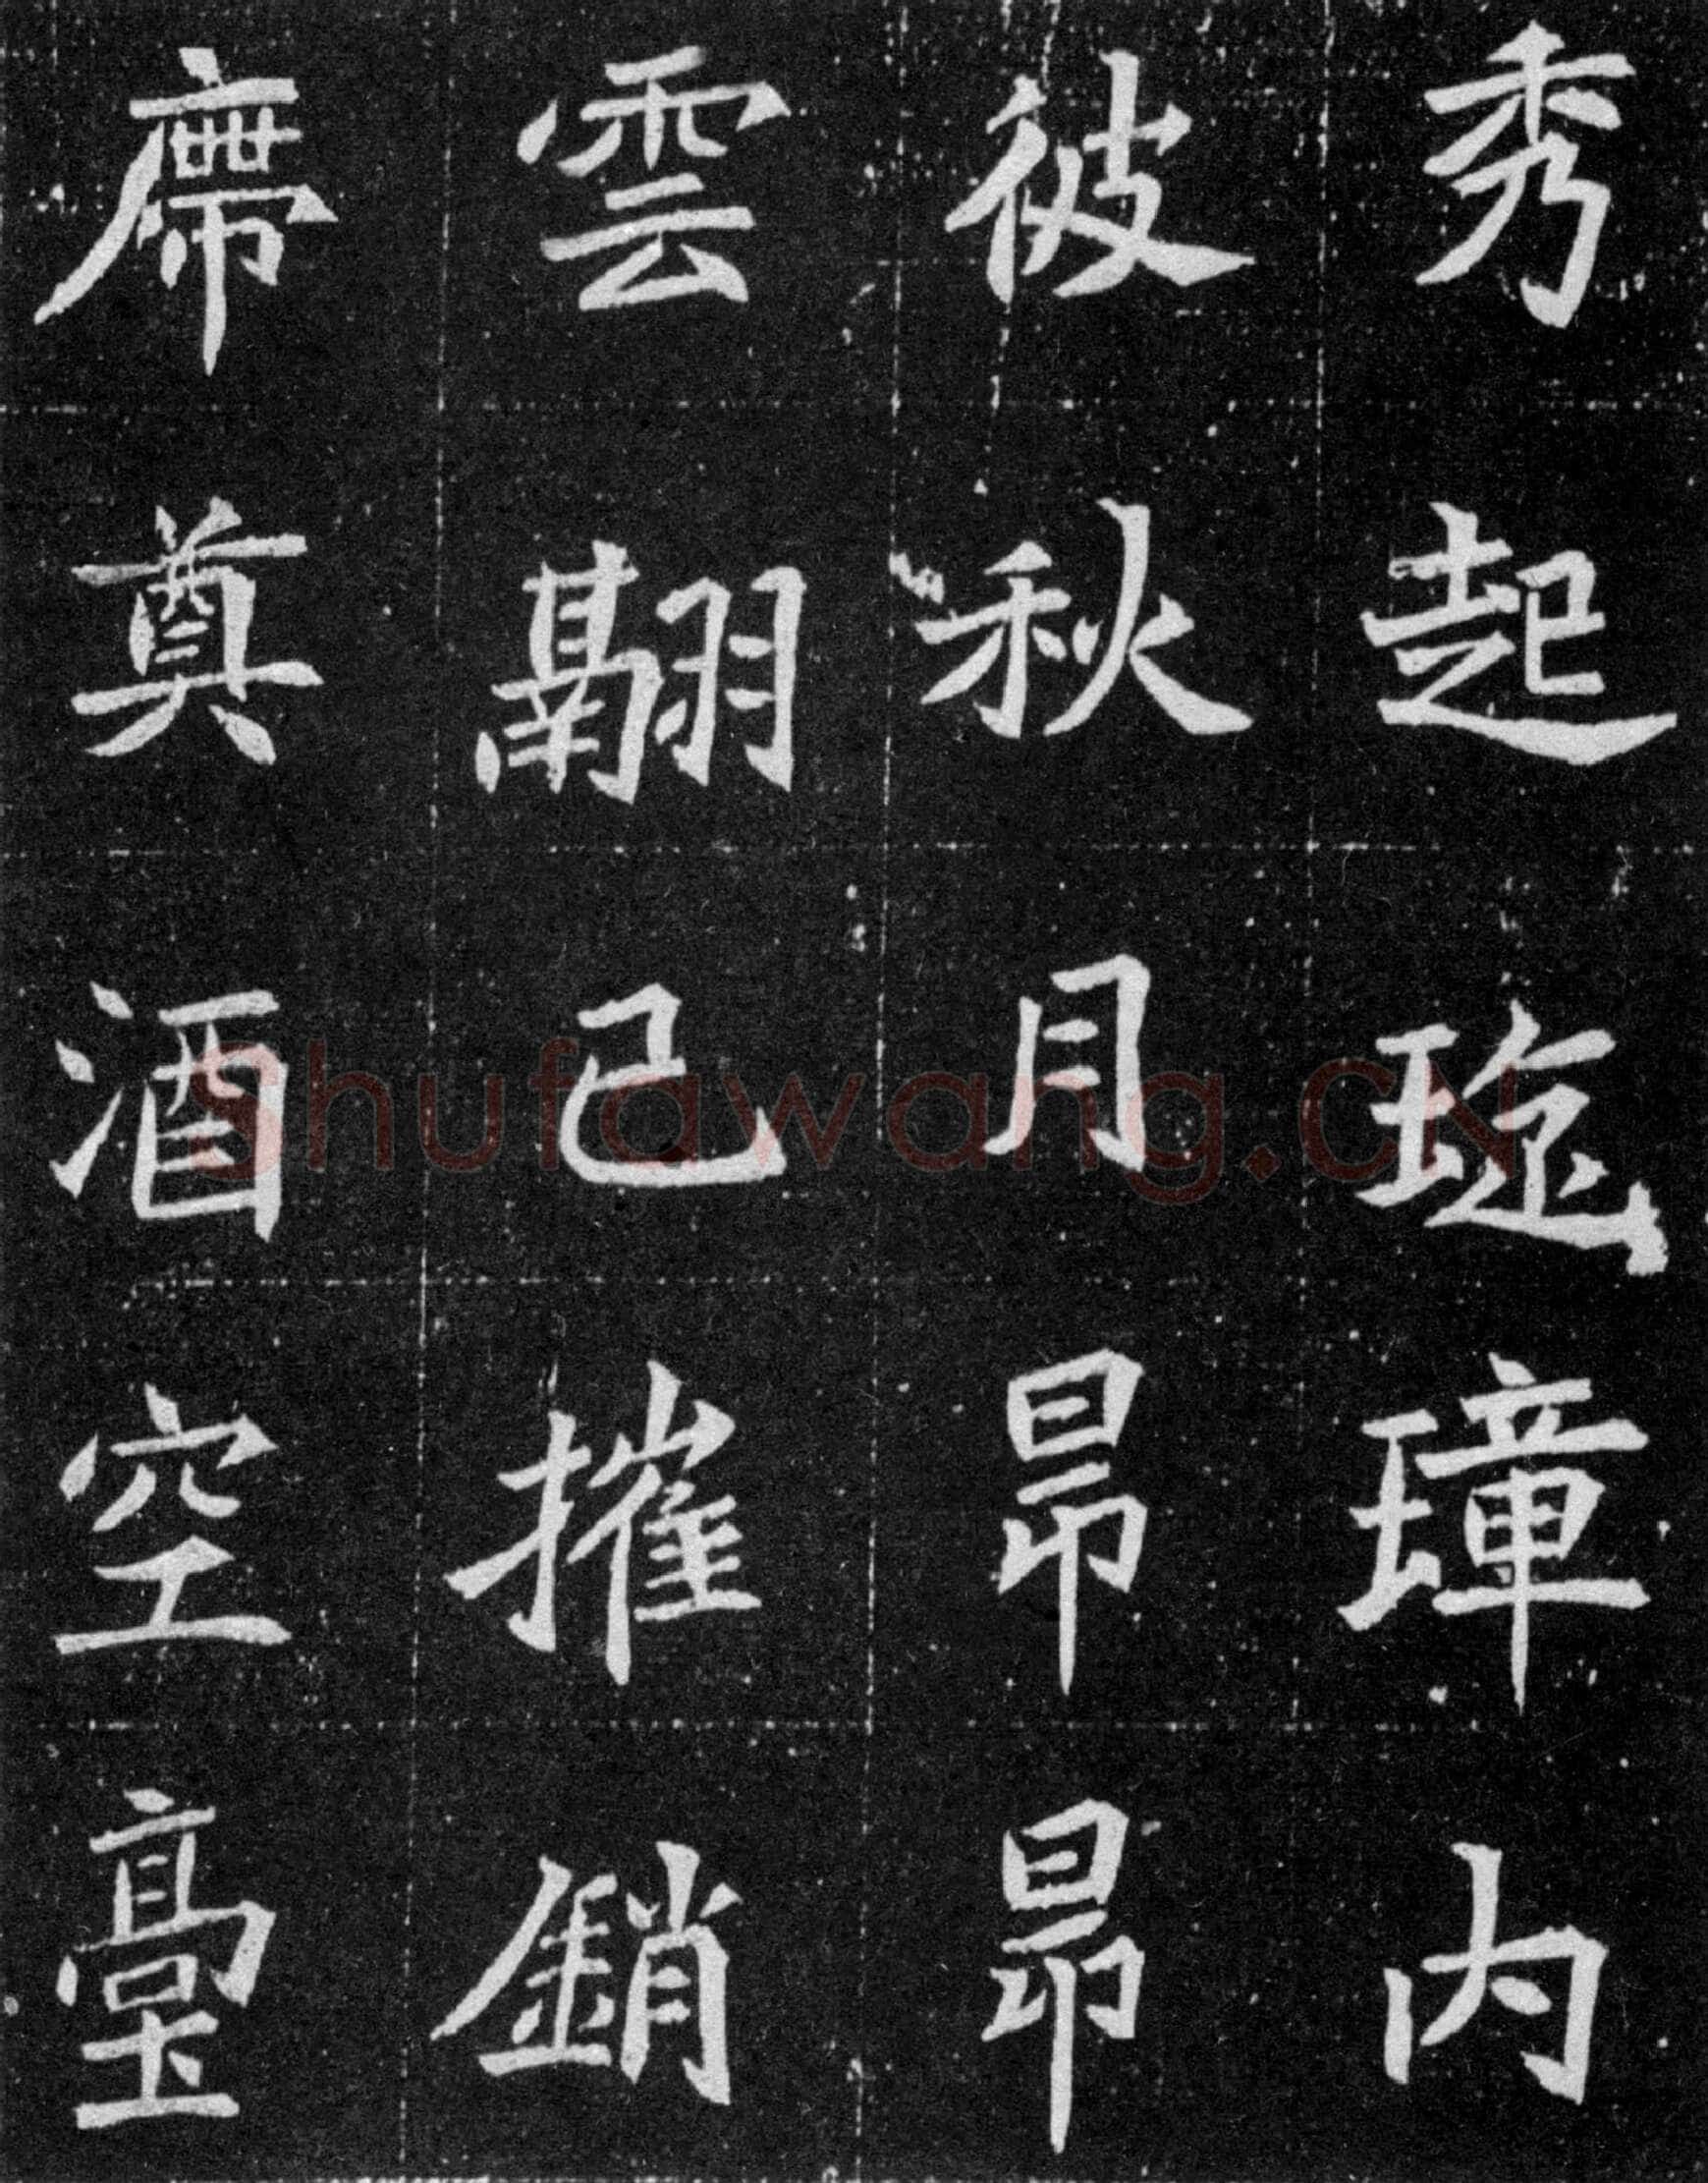 秀起璋内
彼秋月昂昂
雲翮已摧銷
席奠酒空臺
Shufawang.CN